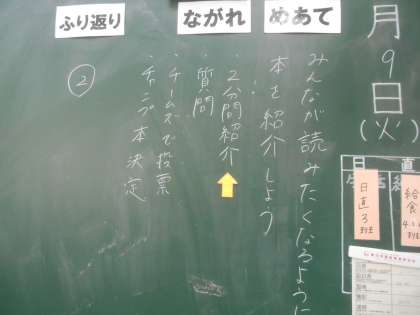 月
9
日
(火)
めあて
みんなが読みたくなるように
本を紹介しよう
ながれ
・2分間紹介
・質問
・チームズで投票
・チャンプ本決定
ふり返り
②
日直3班
給食